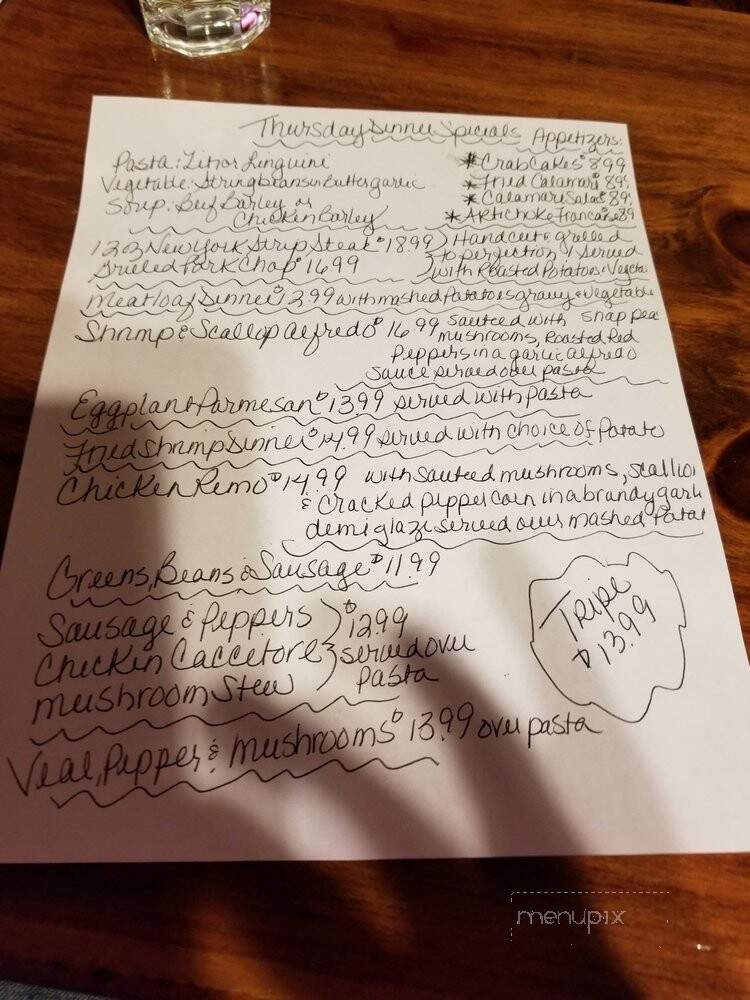 Thursday Dinner Specials
Appetizers:
Pasta: Ziti or Linguini
Vegetable: Stringbeans in Butter garlic
Soup: Beef Barley or
Chicken Barley
* Crab Cakes $8.99
* Fried Calamari $8.9
* Calamari Salad $8.9
* Artichoke Francaise 8.9
12oz New York Strip Steak $18.99
Broiled Pork Chop $16.99
Handcut & grilled
to perfection & served
with Roasted Potatoes & Vegeta
Meatloaf Dinner $12.99 with mashed Potatoes gravy & vegetable
Shrimp & Scallop alfredo $16.99 sauteed with snap pea
mushrooms, Roasted Red
Peppers in a garlic alfredo
sauce served over pasta
Eggplant Parmesan $13.99 served with pasta
Fried Shrimp Dinner $14.99 served with choice of Potato
Chicken Remo $14.99 with sauteed mushrooms, scallio
& cracked peppercorn in a brandy garli
demi glaze served over mashed Potat
Greens, Beans & Sausage $11.99
Sausage & Peppers
Chicken Caccetore
Mushroom Stew
$12.99
served over
Pasta
Tripe
$13.99
Veal, Pepper & Mushrooms $13.99 over pasta
menupix